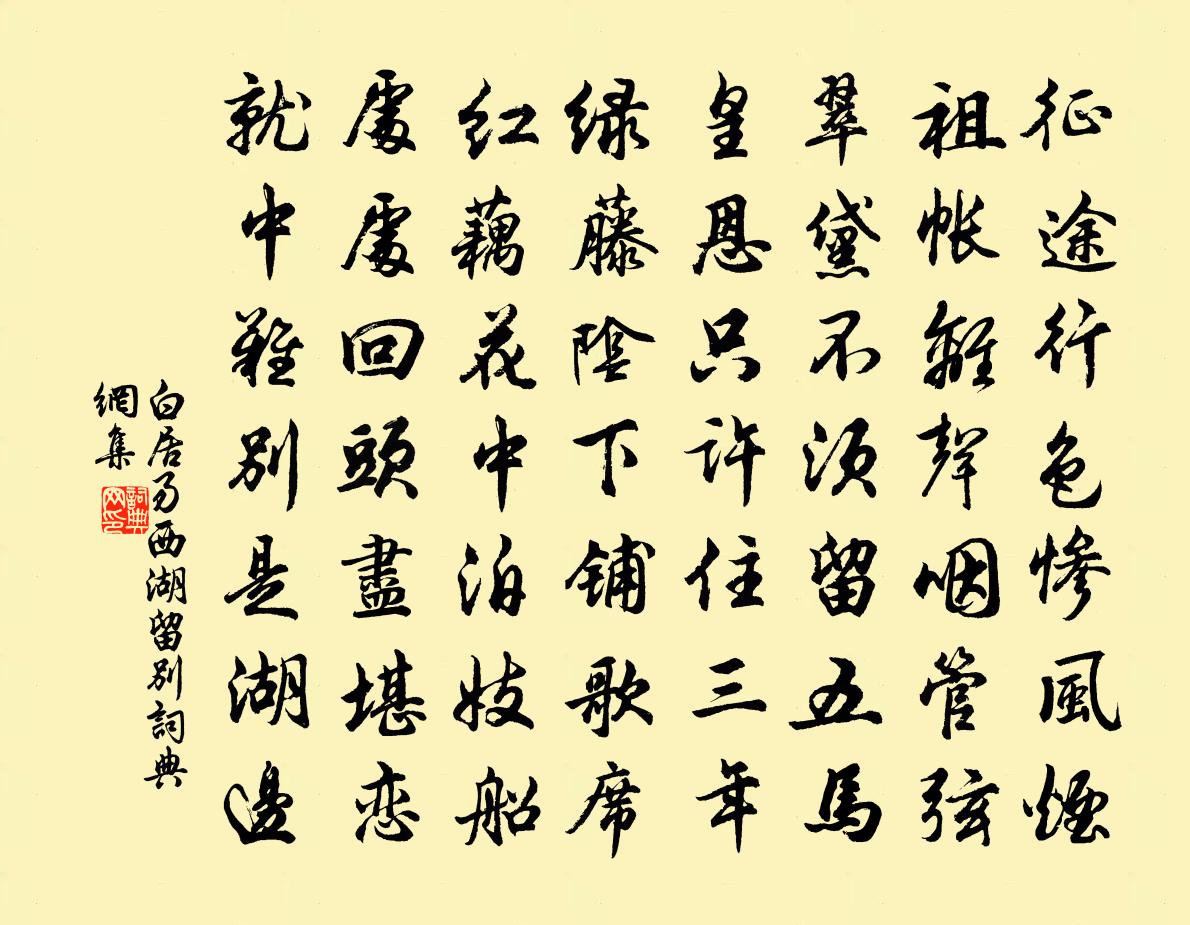 征途行色慘風煙
祖帳離聲咽管弦
翠黛不須留五馬
皇恩只許住三年
绿藤陰下鋪歌席
红藕花中泊妓船
處處回頭盡堪恋
就中難別是湖邊
白居易西湖留別詞典
網集
詞典
网印